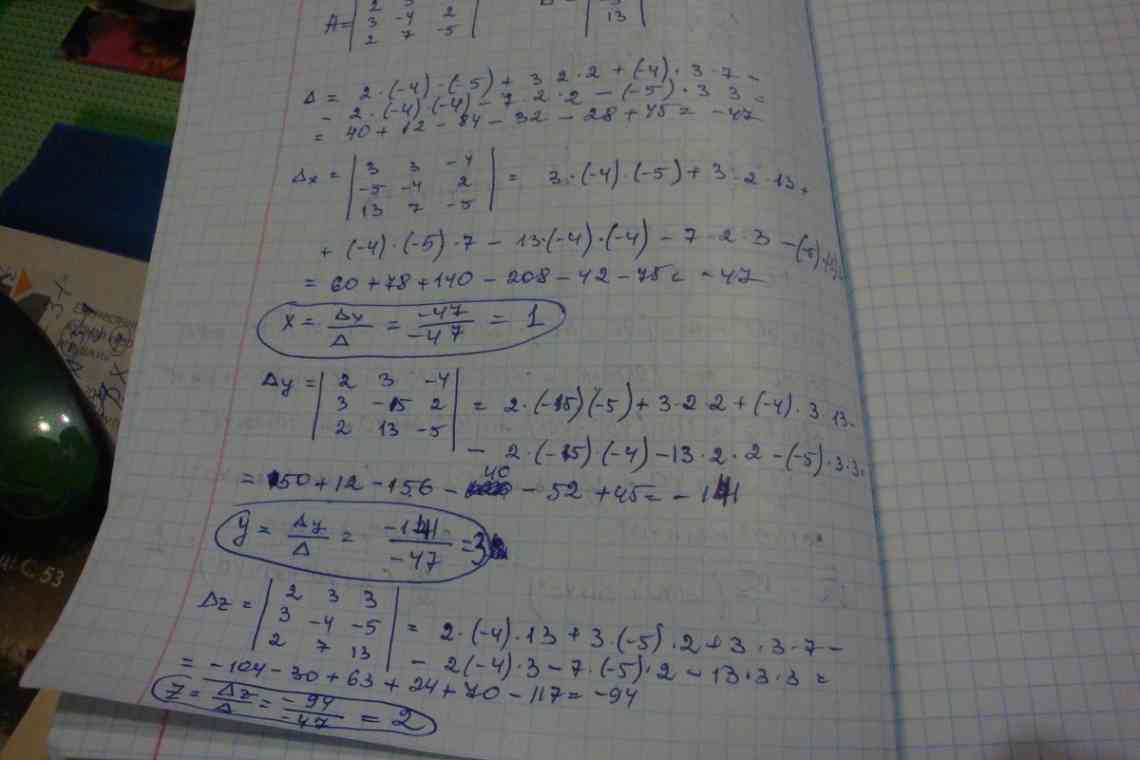 A= | 2 3
3 -4 2
2 7 -5 |
13
Δ = 2·(-4)·(-5) + 3·2·2 + (-4)·3·7 -
- 2·(-4)·(-4) - 7·2·2 - (-5)·3·3 =
= 40 + 12 - 84 - 32 - 28 + 45 = -47
Δx = | 3 3 -4
-5 -4 2
13 7 -5 | = 3·(-4)·(-5) + 3·2·13 +
+ (-4)·(-5)·7 - 13·(-4)·(-4) - 7·2·3 -
= 60 + 78 + 140 - 208 - 42 - 75 = -47
x = Δx/Δ = -47/-47 = 1
Δy = | 2 3 -4
3 -5 2
2 13 -5 | = 2·(-5)(-5) + 3·2·2 + (-4)·3·13 -
- 2·(-5)(-4) - 13·2·2 - (-5)·3·3 =
= 50 + 12 - 156 - 40 - 52 + 45 = -141
y = Δy/Δ = -141/-47 = 3
Δz = | 2 3 3
3 -4 -5
2 7 13 | = 2·(-4)·13 + 3·(-5)·2 + 3·3·7 -
- 2(-4)·3 - 7·(-5)·2 - 13·3·3 =
= -104 - 30 + 63 + 24 + 70 - 117 = -94
z = Δz/Δ = -94/-47 = 2
C 53